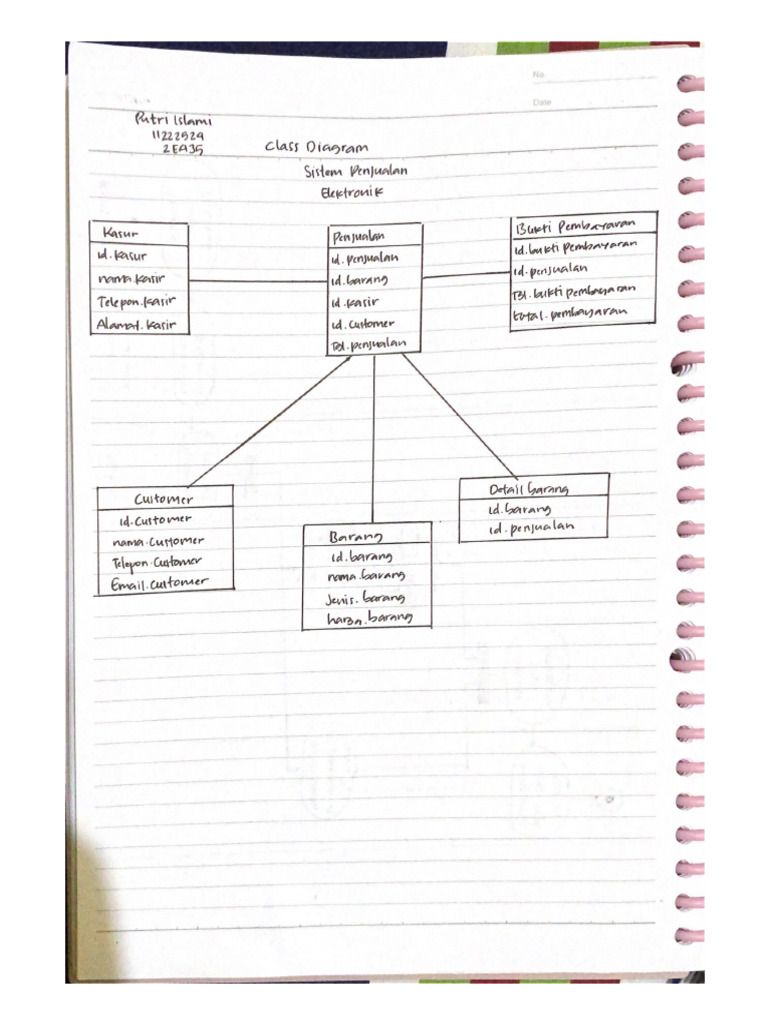 No.
Date
Putri Islami
11222529
2EA35
Class Diagram
Sistem Penjualan
Elektronik
Kasur
id.kasur
nama.kasir
Telepon.kasir
Alamat.kasir
Penjualan
id.penjualan
id.barang
id.kasir
id.customer
Tgl.penjualan
Bukti Pembayaran
id.bukti pembayaran
id.penjualan
Tgl.bukti pembayaran
total.pembayaran
Customer
id.customer
nama.customer
Telepon.customer
Email.customer
Barang
id.barang
nama.barang
Jenis.barang
harga.barang
Detail barang
id.barang
id.penjualan